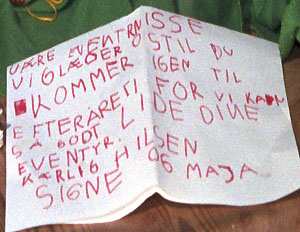 KÆRE EVENTRNISSE
VI GLÆDER OS TIL DU
KOMMER IGEN TIL
EFTERÅRET FOR VI KAN
SÅ GODT LIDE DINE
EVENTYR.
KÆRLIG HILSEN
SIGNE OG MAJA